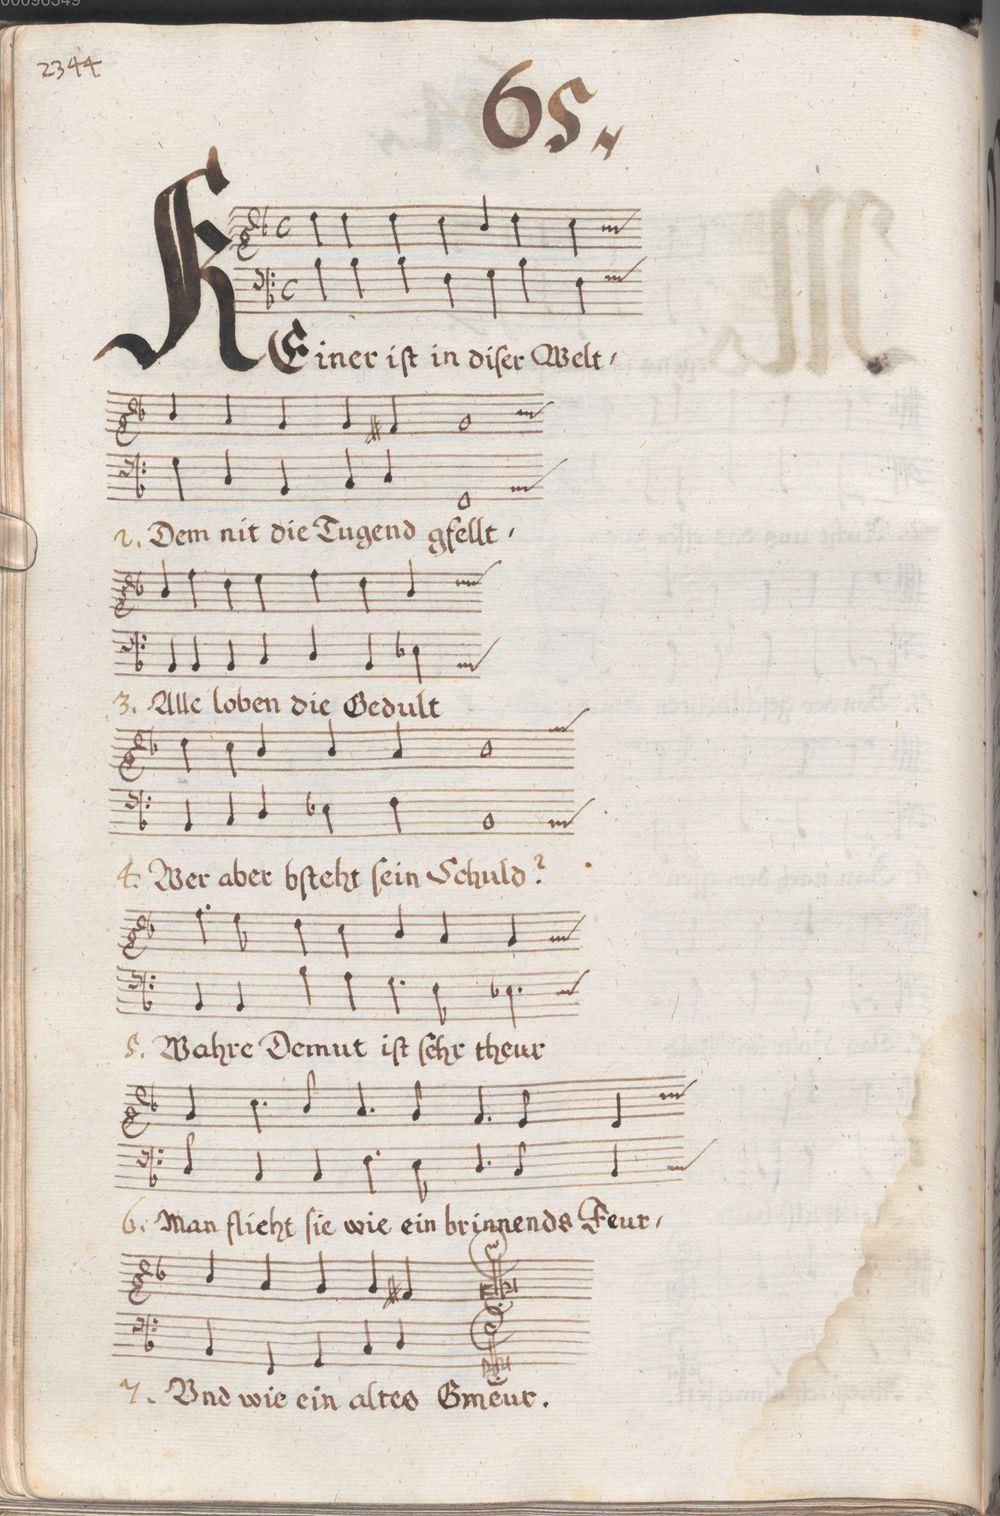 00096349
2344
65.
KEiner ist in diser Welt,
2. Dem nit die Tugend gfellt,
3. Alle loben die Gedult
4. Wer aber bsteht sein Schuld?
5. Wahre Demut ist sehr theur
6. Man flieht sie wie ein brinnends Feur,
7. Vnd wie ein altes Gmeur.